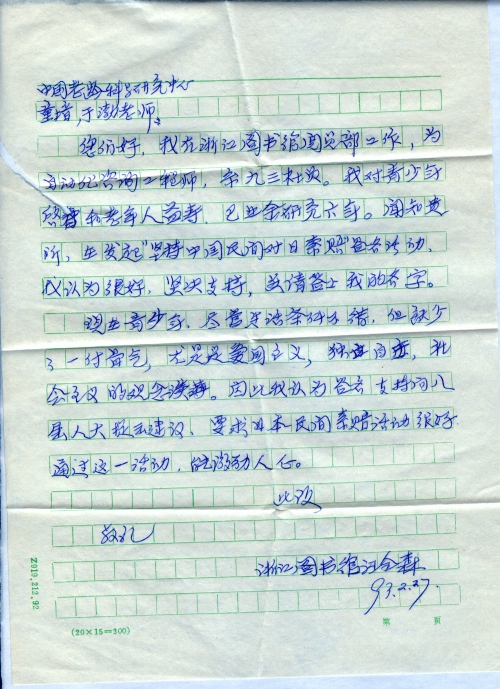 中国老龄科学研究中心
童增，于澎老师：
您们好，我在浙江图书馆阅览部工作，为
自动化咨询工程师，系九三社员。我对青少年
启蒙和老年人益寿，已业余研究六年。闻知贵
所，在发起“坚持中国民间对日索赔”签名活动，
我认为很好，坚决支持，敬请签上我的名字。
现在青少年，尽管生活条件不错，但缺少
了一付骨气，尤是是爱国主义，独立自主，社
会主义的观念淡薄。因此我认为签名支持向八
届人大提出建议，要求日本民间索赔活动很好
通过这一活动，能激动人心。
此致
敬礼
浙江图书馆汪全森
93.2.27
Z910.212.92
(20×15=300)
第 页